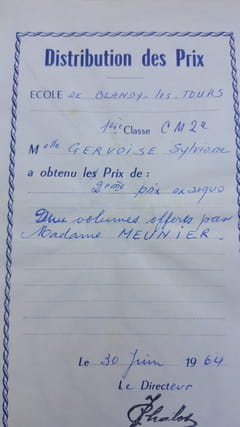 Distribution des Prix
ECOLE de BLANDY-les-TOURS
1ère Classe CM2e
Melle GERVOISE Sylviane
a obtenu les Prix de :
2ème prix ex aequo
Deux volumes offerts par
Madame MEUNIER.
Le 30 Juin 1964
Le Directeur